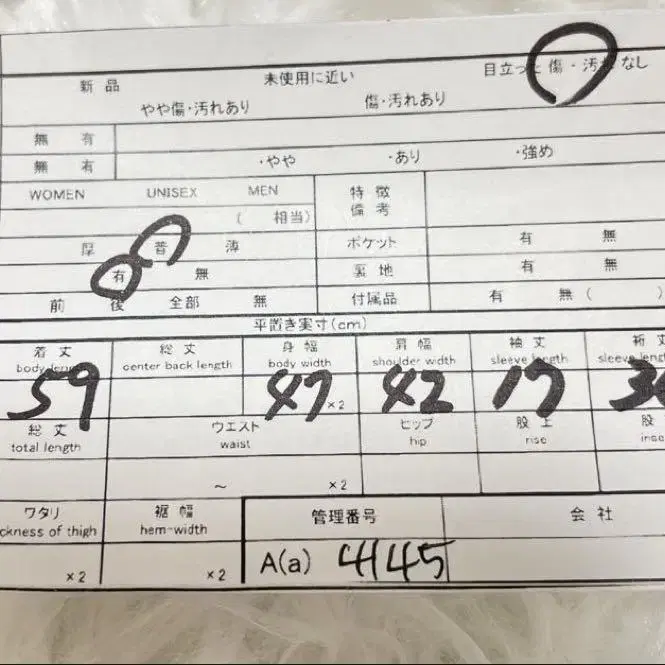 新品 未使用に近い 目立った傷・汚れなし
やや傷・汚れあり 傷・汚れあり
無 有
無 有 ・やや ・あり ・強め
WOMEN UNISEX MEN 特徴
備考
( 相当)
厚 普 薄 ポケット 有 無
有 無 裏地 有 無
前 後 全部 無 付属品 有 無 ( )
平置き実寸(cm)
着丈 総丈 身幅 肩幅 袖丈 裄丈
body length center back length body width shoulder width sleeve length sleeve
59 47 ×2 42 17
総丈 ウエスト ヒップ 股上 股
total length waist hip rise
～ ×2
ワタリ 裾幅 管理番号 会社
ckness of thigh hem-width
×2 ×2 A(a) 4145